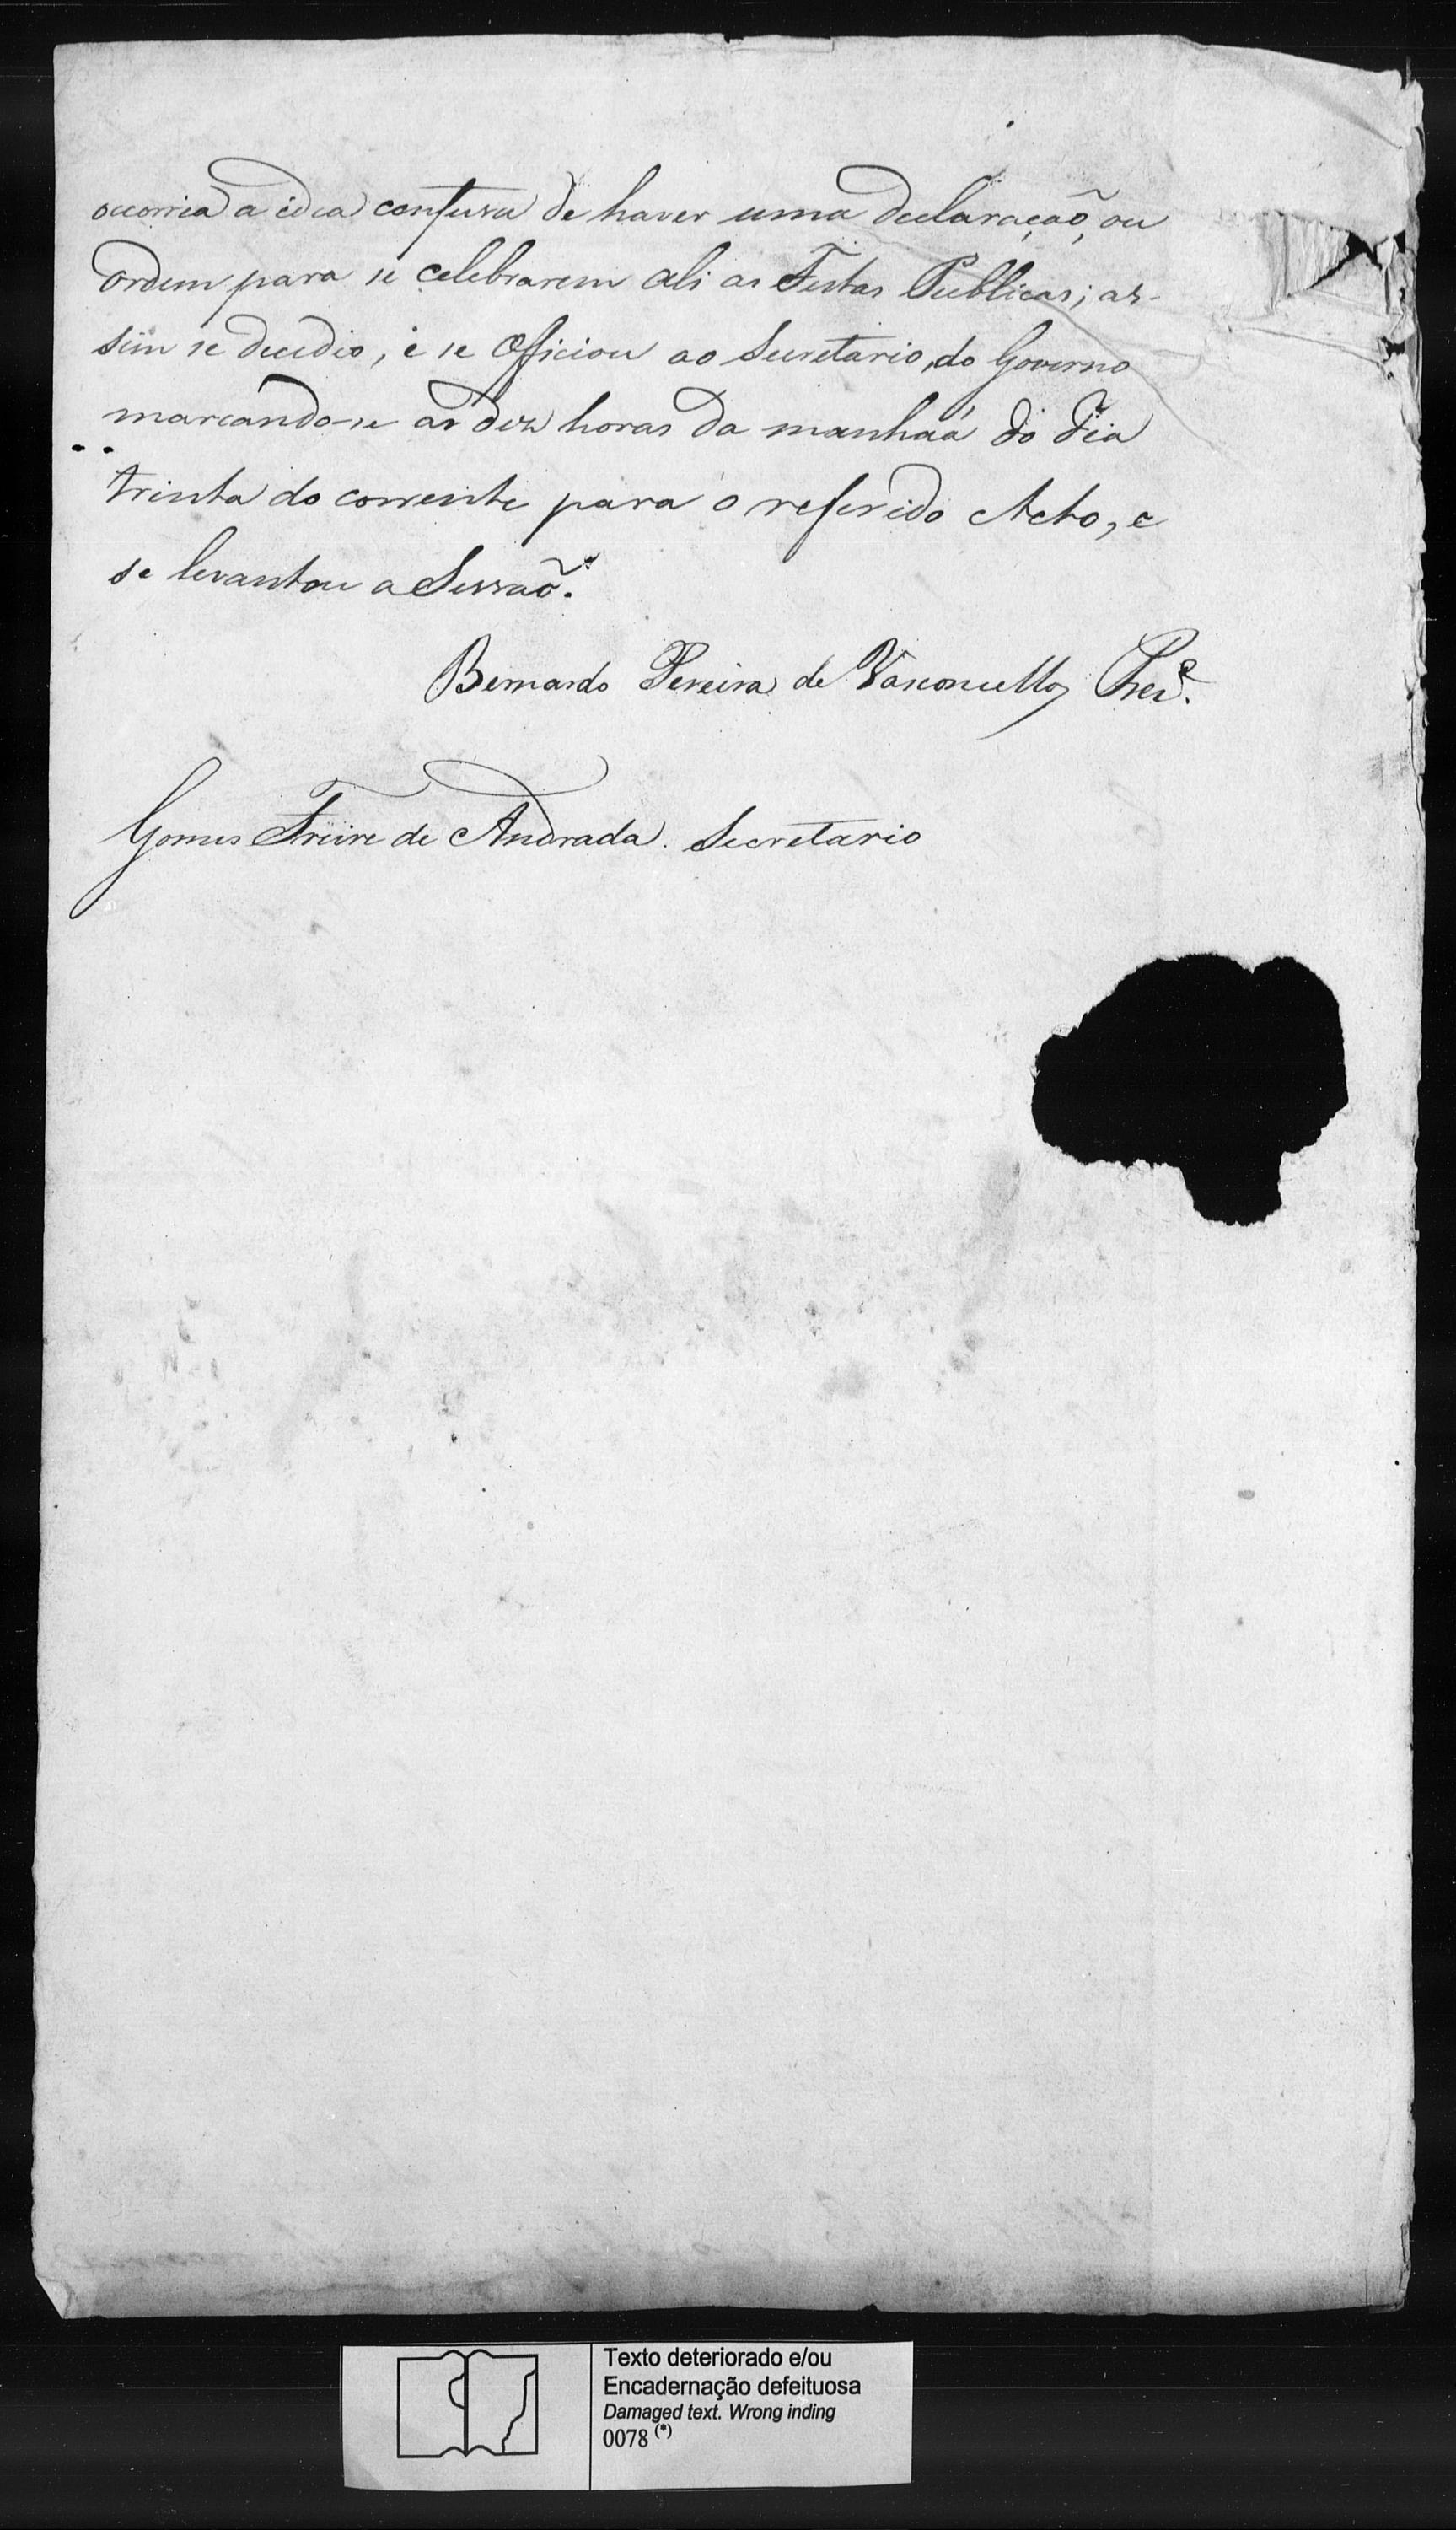 occorria a idea confusa de haver uma declaração, ou
ordem para se celebrarem ali as Festas Publicas; as-
sim se decedio, e se Officiou ao Secretario do Governo
marcando-se as dez horas da manhaã do dia
trinta do corrente para o referido Acto, e
se levantou a Sessaõ.
Bernardo Pereira de Vasconcellos Prez.e
Gomes Freire de Andrada. Secretario
Texto deteriorado e/ou
Encadernação defeituosa
Damaged text. Wrong inding
0078 (*)